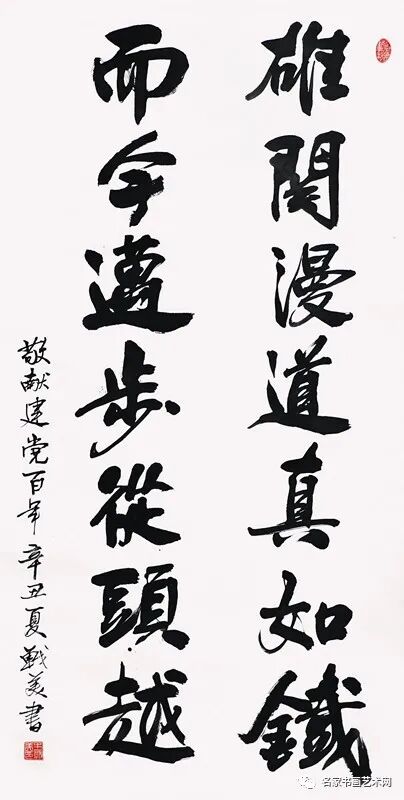 雄関漫道真如鐵
而今邁步從頭越
敬献建党百年辛丑夏戰美書
名家书画艺术网